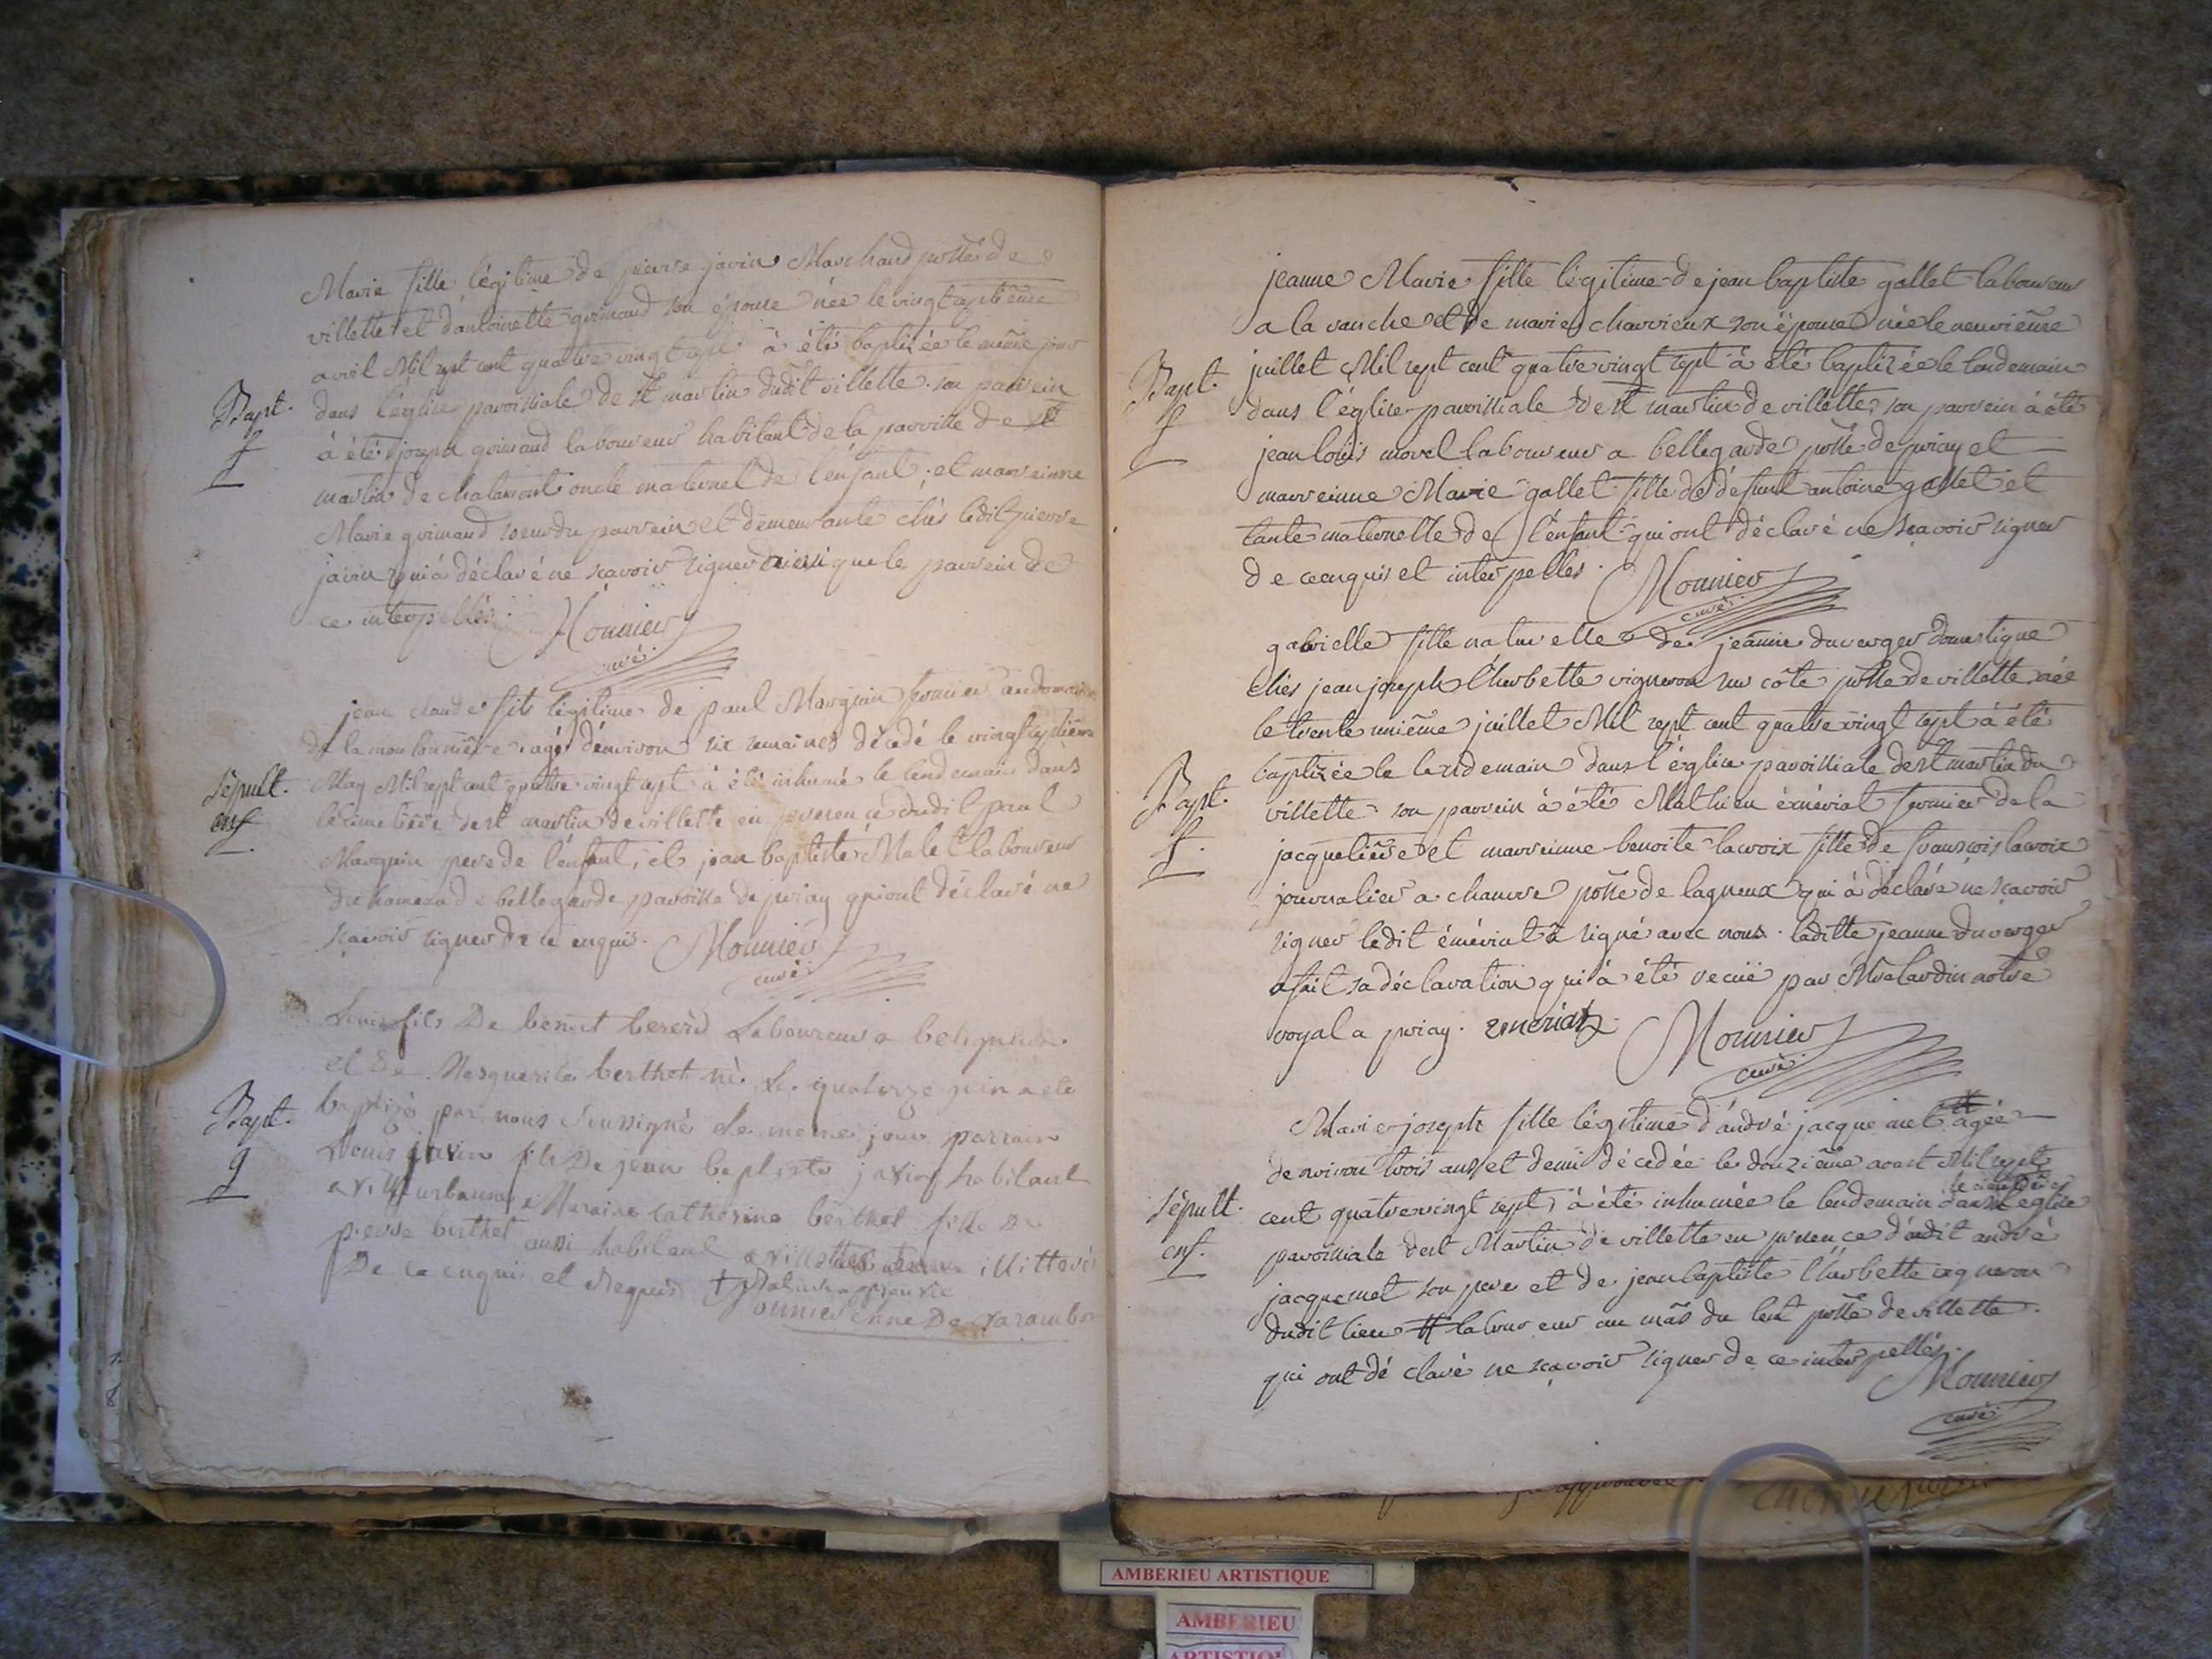 Marie fille légitime de pierre javin Marchand psse de
villette et d'antoinette guinand son épouse née le vingt septième
avril Mil sept cent quatre vingt sept à été baptizée le même jour
Bapt.
f
dans l'église paroissiale de st martin dudit villette. son parrein
à été joseph guinand laboureur habitant de la parroisse de st
martin de chalamont oncle maternel de l'enfant; et marreinne
Marie guinand soeur du parrein et demeurante chés ledit pierre
javin qui à déclaré ne sçavoir signer ainsi que le parrein de
ce interpellés. Mounier
curé
jean claude fils légitime de paul Marguin fermier au domaine
de la moutonnière agé d'environ six semaines décedé le vingt septième
Sépult.
enf
May Mil sept cent quatre vingt sept à été inhumé le lendemain dans
le cimetière de st martin de villette en présence dudit paul
Marguin pere de l'enfant, et jean baptiste Malet laboureur
du hameau de bellegarde paroisse de priay qui ont déclaré ne
sçavoir signer de ce enquis. Mounier
curé
Louis fils De benoit bererd Laboureur a
et De Marguerite berthet né Le quatorze juin a ete
Bapt.
g
baptizé par nous Soussigné le meme jour parrain
Louis javin fils De jean baptiste javin habitant
a villurbanne Maraine Catherine berthet fille De
pierre berthet aussi habitant a villette illitterés
De ce enquis et Requis
Mounier De varambon
jeanne Marie fille légitime de jean baptiste gallet laboureur
a la vauche et de marie charvieux son épouse née le neuvième
Bapt.
f
juillet Mil sept cent quatre vingt sept à été baptizée le lendemain
dans l'église paroissiale de st martin de villette, son parrein à été
jean loüis morel laboureur a bellegarde psse de priay et
marreinne Marie gallet fille de défunt antoine gallet et
tante maternelle de l'enfant qui ont déclaré ne sçavoir signer
de ce enquis et interpellés. Mounier
curé
gabrielle fille naturelle de jeanne duverger domestique
chés jean joseph l'herbette vigneron sur côte psse de villette née
le trente unième juillet Mil sept cent quatre vingt sept à été
Bapt.
f.
baptizée le lendemain dans l'église paroissiale de st martin du
villette son parrein à été Mathieu émériat fermier de la
jacquetière et marreinne benoite lacroix fille de francois lacroix
journalier a chamve psse de lagneux qui à déclaré ne sçavoir
signer ledit émériat à signé avec nous. laditte jeanne duverger
a fait sa déclaration qui à été recuë par Me lardin notre
royal a priay. emeriat Mounier
curé
Marie joseph fille légitime d'andré jacquemet agée
d'environ trois ans et demi décedée le douzième aoust Mil sept
Sépult.
enf.
cent quatre vingt sept, à été inhumée le lendemain dans l'eglise
le cimetière de
paroissiale de st Martin de villette en présence dudit andré
jacquemet son pere et de jean baptiste l'herbette vigneron
dudit lieu laboureur au mas du lent psse de villette.
qui ont déclaré ne sçavoir signer de ce interpellés.
Mounier
curé
AMBERIEU ARTISTIQUE
AMBERIEU
ARTISTIQUE